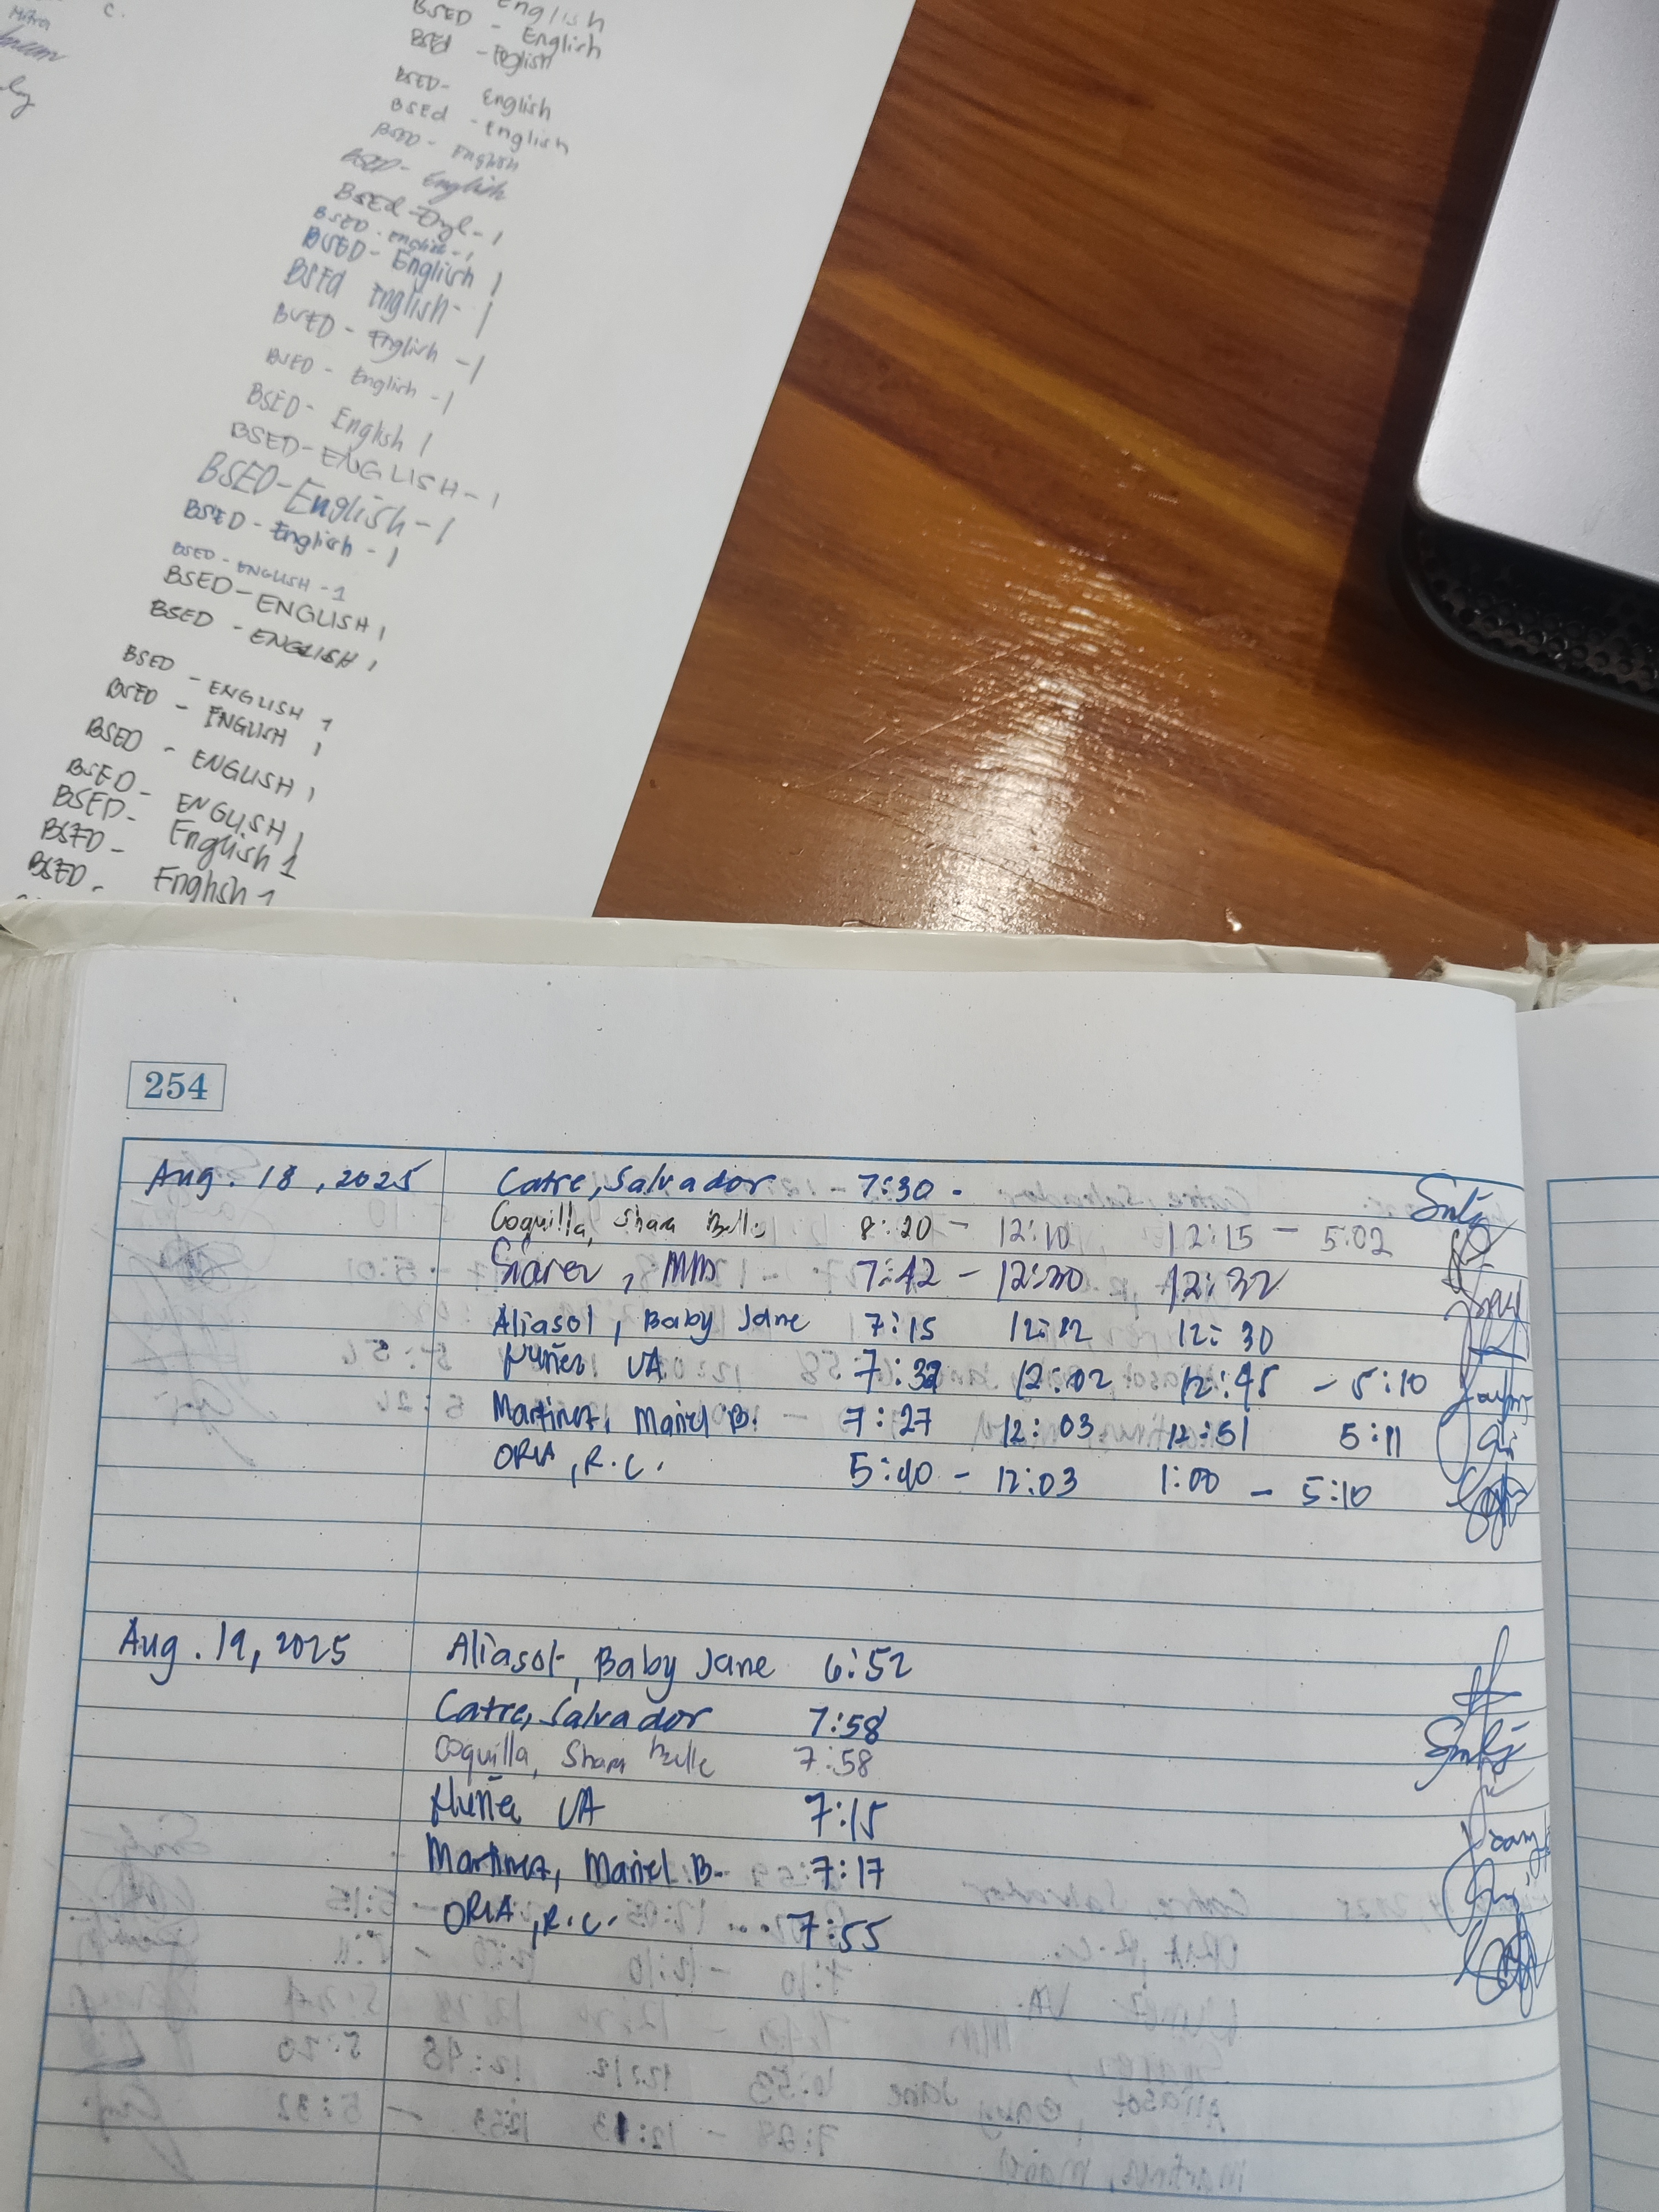 Mitra
C.
English
BSED - English
BSEd - English
BSED- English
BSEd - English
BSED - English
BSED- English
BSEd - Engl - 1
BSED - English - 1
BSED - English 1
BSEd English - 1
BSED - English - 1
BSED - English - 1
BSED - English 1
BSED-ENGLISH-1
BSED-English-1
BSED - English - 1
BSED - ENGLISH - 1
BSED-ENGLISH 1
BSED - ENGLISH 1
BSED - ENGLISH 1
BSED - ENGLISH 1
BSED - ENGLISH 1
BSED- ENGLISH 1
BSED- English 1
BSED - English 1
254
Aug. 18, 2025 Catre, Salvador 7:30 -
Coquilla, Shara Belle 8:20 - 12:10 12:15 - 5:02
MM 7:42 - 12:30 12:32
Aliasot, Baby Jane 7:15 12:12 12:30
Nuñez VA 7:32 12:02 12:45 - 5:10
Martinez, Mariel B. 7:27 12:03 12:51 5:11
ORIA, R.C. 5:40 - 12:03 1:00 - 5:10
Aug. 19, 2025 Aliasot, Baby Jane 6:52
Catre, Salvador 7:58
Coquilla, Shara Belle 7:58
Nuñez VA 7:15
Martinez, Mariel B. 7:17
ORIA, R.C. 7:55